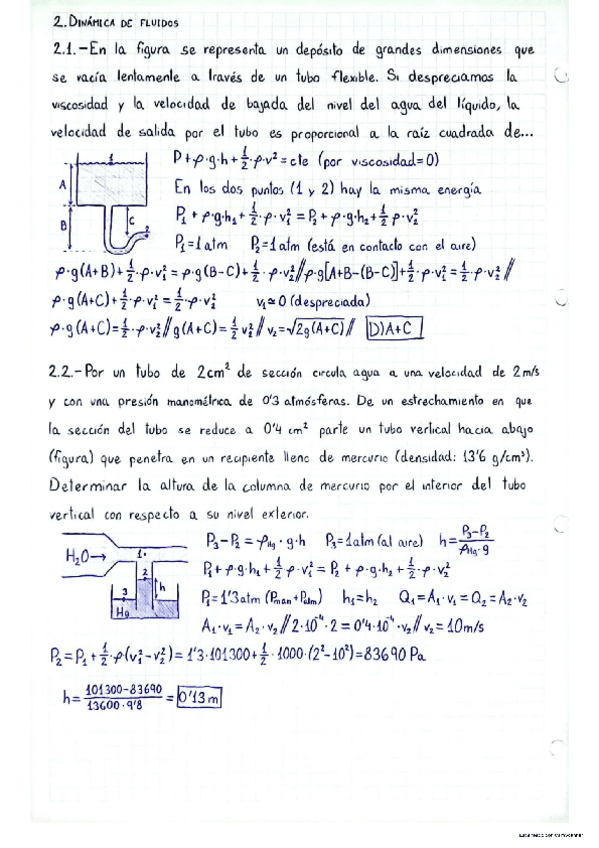 2. DINÁMICA DE FLUIDOS
2.1.-En la figura se representa un depósito de grandes dimensiones que
se vacía lentamente a través de un tubo flexible. Si despreciamos la
viscosidad y la velocidad de bajada del nivel del agua del líquido, la
velocidad de salida por el tubo es proporcional a la raíz cuadrada de...
P+ρ·g·h+½·ρ·v²=cte (por viscosidad=0)
En los dos puntos (1 y 2) hay la misma energía
P₁+ρ·g·h₁+½·ρ·v₁²=P₂+ρ·g·h₂+½ρ·v₂²
P₁=1atm P₂=1atm (está en contacto con el aire)
1
A
B
C
2
ρ·g(A+B)+½·ρ·v₁²=ρ·g(B-C)+½·ρ·v₂²//ρ·g[A+B-(B-C)]+½·ρ·v₁²=½·ρ·v₂²//
ρ·g(A+C)+½·ρ·v₁²=½·ρ·v₂² v₁≃0 (despreciada)
ρ·g(A+C)=½·ρ·v₂²//g(A+C)=½v₂²//v₂=√2g(A+C)// D)A+C
2.2.-Por un tubo de 2cm² de sección circula agua a una velocidad de 2m/s
y con una presión manométrica de 0'3 atmósferas. De un estrechamiento en que
la sección del tubo se reduce a 0'4 cm² parte un tubo vertical hacia abajo
(figura) que penetra en un recipiente lleno de mercurio (densidad: 13'6 g/cm³).
Determinar la altura de la columna de mercurio por el interior del tubo
vertical con respecto a su nivel exterior.
P₃-P₂=ρHg·g·h P₃=1atm(al aire) h=P₃-P₂/ρHg·g
P₁+ρ·g·h₁+½ρ·v₁²=P₂+ρ·g·h₂+½·ρ·v₂²
P₁=1'3atm (Pman+Patm) h₁=h₂ Q₁=A₁·v₁=Q₂=A₂·v₂
A₁·v₁=A₂·v₂//2·10⁻⁴·2=0'4·10⁻⁴·v₂//v₂=10m/s
H₂O→
1·
2
3
h
Hg
P₂=P₁+½·ρ(v₁²-v₂²)=1'3·101300+½·1000·(2²-10²)=83690 Pa
h=101300-83690/13600·9'8=0'13m